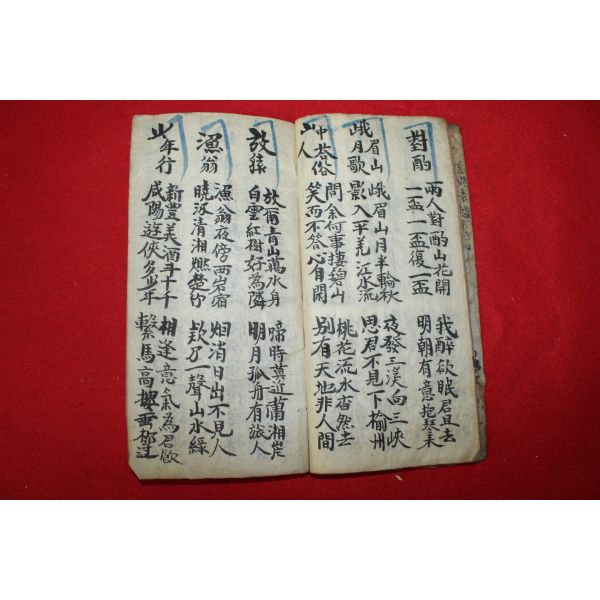 對酌
兩人對酌山花開
一盃一盃復一盃
我醉欲眠君且去
明朝有意抱琴來
峨眉山
月歌
峨眉山月半輪秋
影入平羌江水流
夜發三溪向三峽
思君不見下榆州
山中答俗
人
問余何事棲碧山
笑而不答心自閑
桃花流水杳然去
別有天地非人間
放猿
放爾青山萬水身
白雲紅樹好為隣
啼時莫近蕭湘岸
明月孤舟有旅人
漁翁
漁翁夜傍西岩宿
曉汲清湘燃楚竹
烟消日出不見人
欸了一聲山水綠
少年行
新豊美酒斗十千
咸陽遊俠多少年
相逢意氣為君飲
繫馬高樓垂柳邊